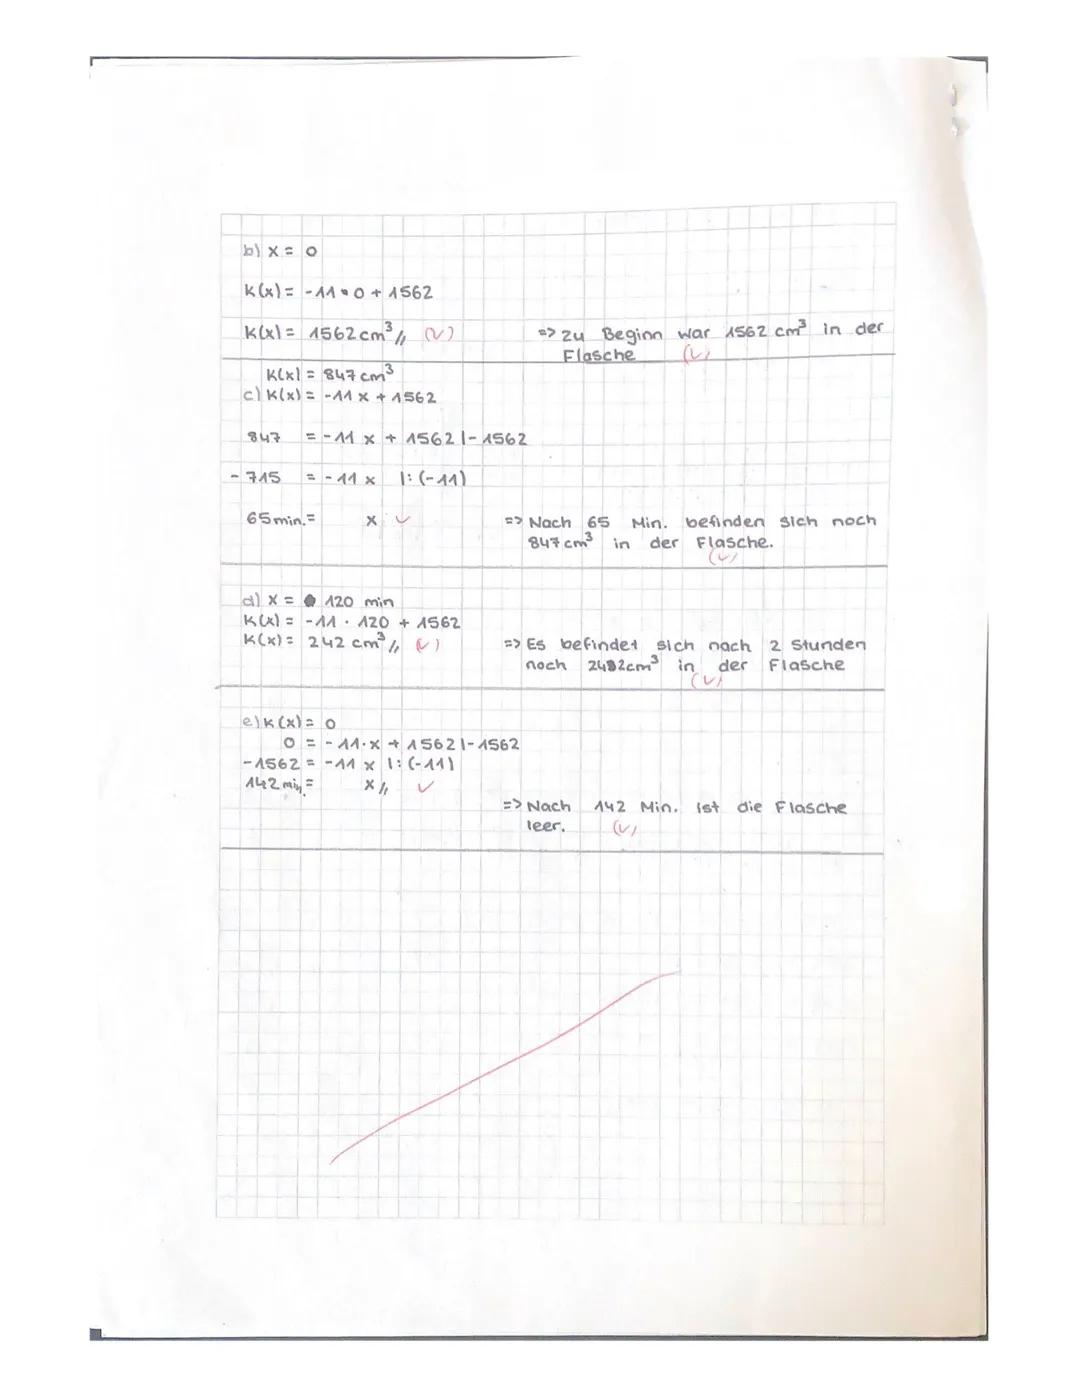 b) x = 0
K(x) = -11 • 0 + 1562
K(x) = 1562 cm³// (✓)
=> Zu Beginn war 1562 cm³ in der
Flasche (✓)
K(x) = 847 cm³
c) K(x) = -11 x + 1562
847 = -11 x + 1562 |- 1562
- 715 = -11 x |: (-11)
65 min. = x ✓
=> Nach 65 Min. befinden sich noch
847 cm³ in der Flasche.
(✓)
d) x = 120 min
K(x) = -11 · 120 + 1562
K(x) = 242 cm³// (✓)
=> Es befindet sich nach 2 Stunden
noch 242cm³ in der Flasche
(✓)
e) K(x) = 0
0 = -11·x + 1562 |-1562
-1562 = -11 x |: (-11)
142 min. = x// ✓
=> Nach 142 Min. ist die Flasche
leer. (✓)